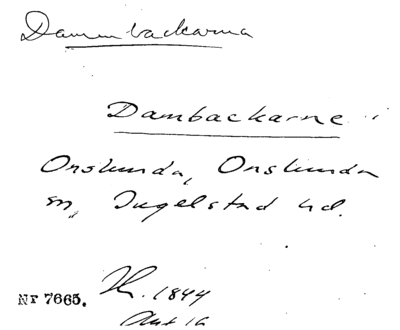 Dammbackarna
Dambackarne i
Onslunda, Onslunda
sn, Ingelstad hd.
Nr 7665. 1844
Akt 16